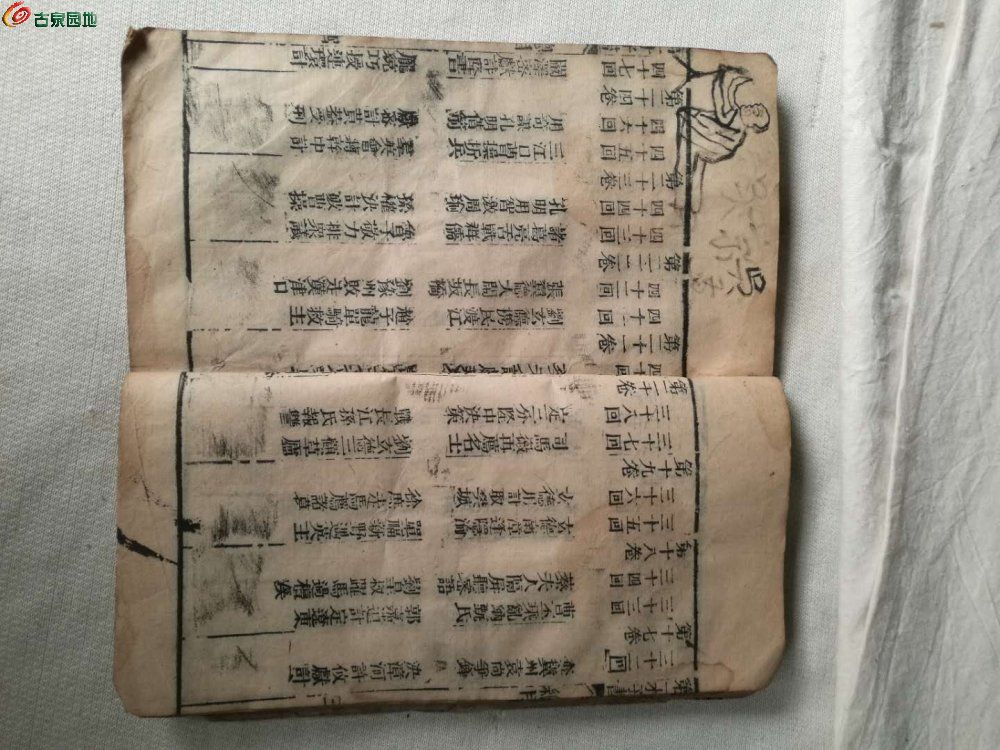 古泉园地
三十二回 奪冀州袁尚爭鋒 決漳河許攸獻計
第十七卷
三十三回 曹丕乘亂納甄氏 郭嘉遺計定遼東
三十四回 蔡夫人隔屏聽密語 劉皇叔躍馬過檀溪
第十八卷
三十五回 玄德南漳逢隱淪 單福新野遇英主
三十六回 玄德用計取樊城 徐庶走馬薦諸葛
第十九卷
三十七回 司馬徽再薦名士 劉玄德三顧草廬
三十八回 定三分隆中決策 戰長江孫氏報讐
第二十卷
四十回
第二十一卷
四十一回 劉玄德攜民渡江 趙子龍單騎救主
四十二回 張翼德大鬧長坂橋 劉豫州敗走漢津口
第二十二卷
四十三回 諸葛亮舌戰群儒 魯子敬力排眾議
四十四回 孔明用智激周瑜 孫權決計破曹操
第二十三卷
四十五回 三江口曹操折兵 羣英會蔣幹中計
四十六回 用奇謀孔明借箭 獻密計黃蓋受刑
第二十四卷
四十七回 闞澤密獻詐降書 龐統巧授連環計